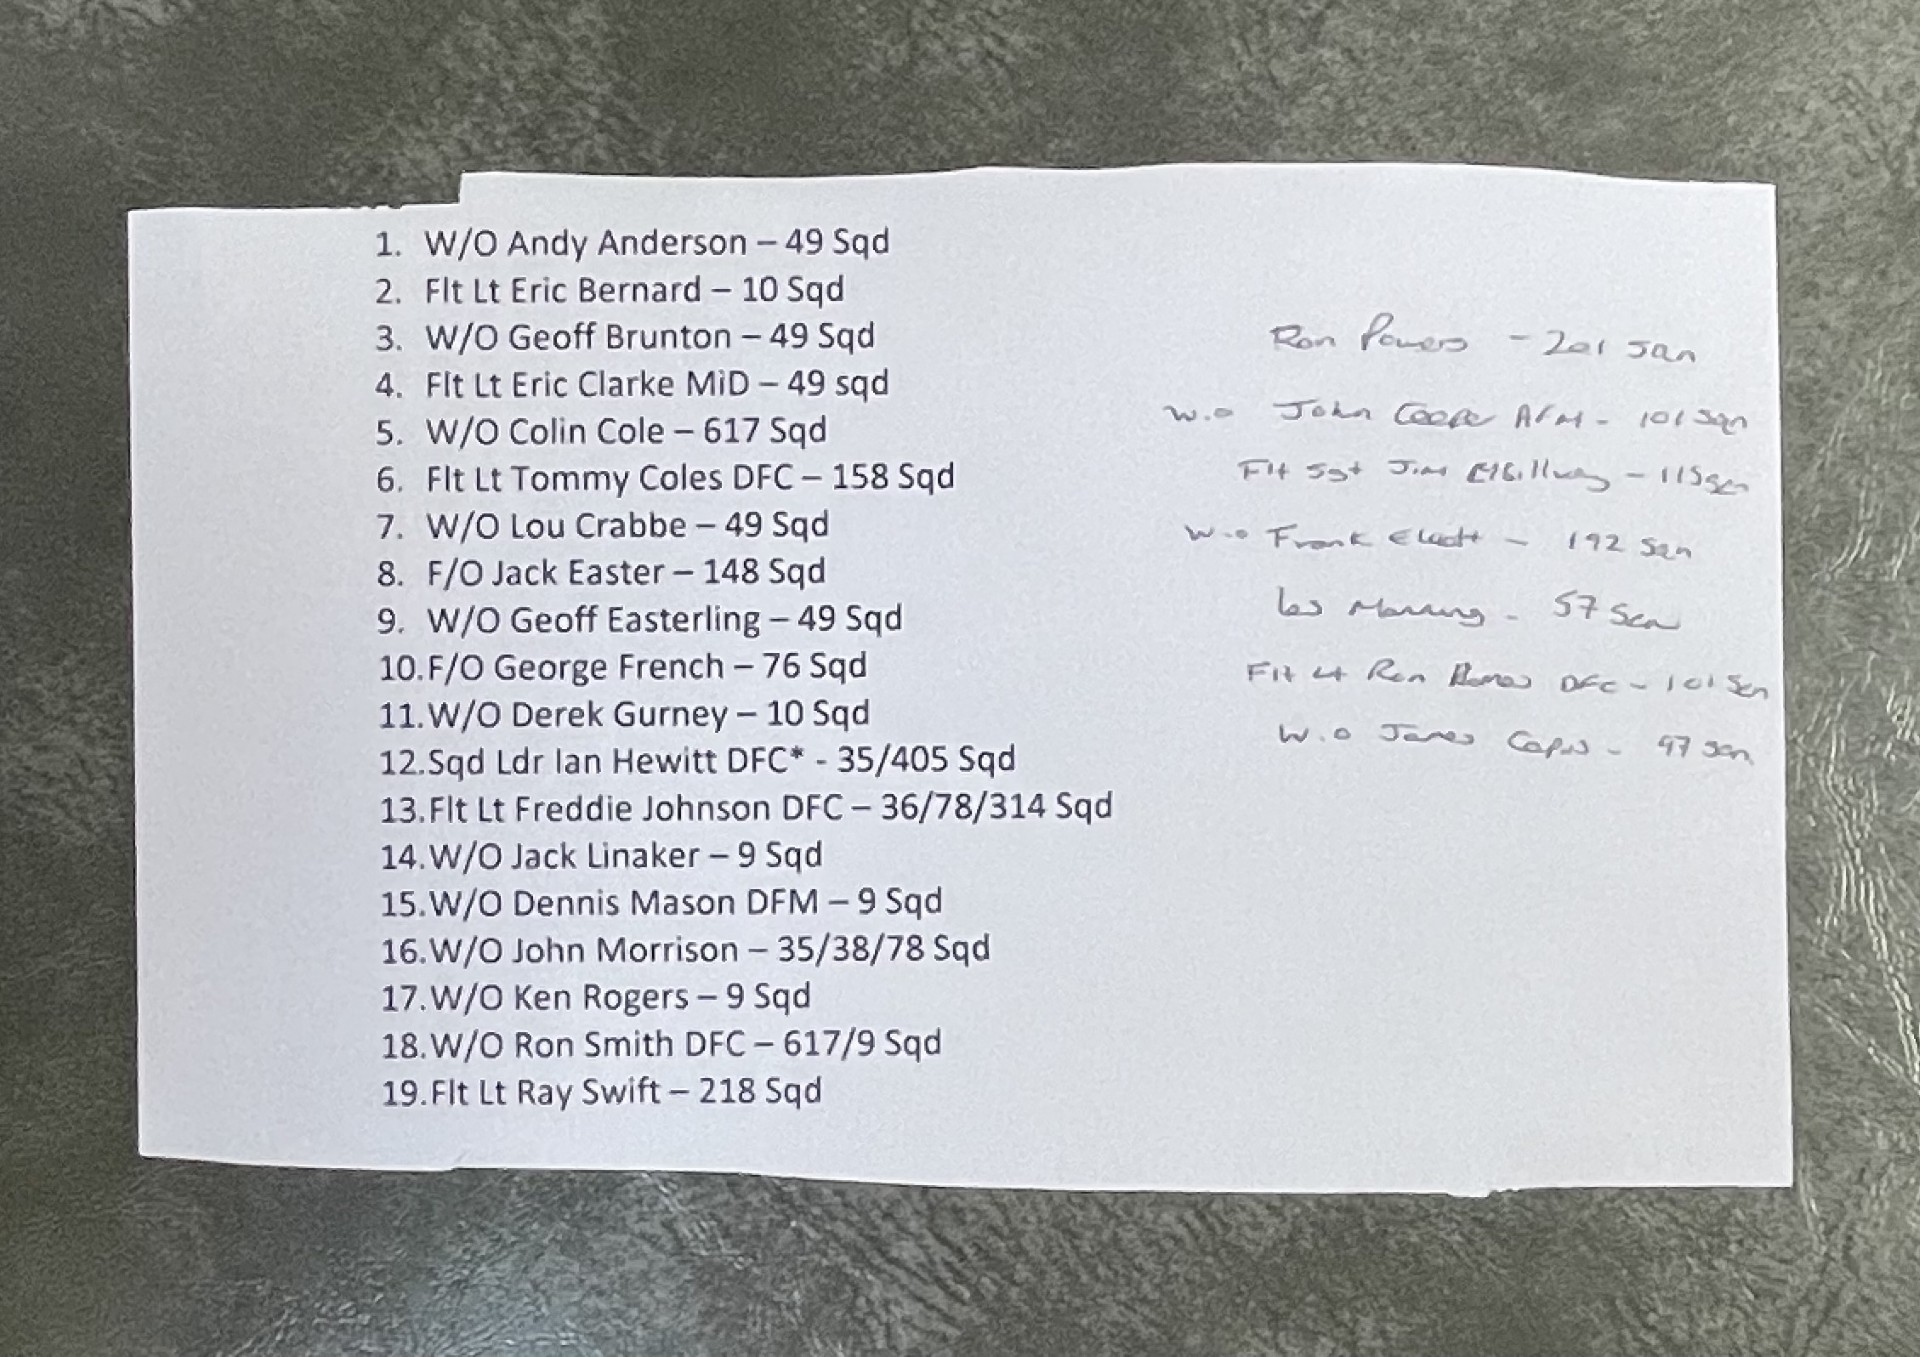 1. W/O Andy Anderson – 49 Sqd
2. Flt Lt Eric Bernard – 10 Sqd
3. W/O Geoff Brunton – 49 Sqd
4. Flt Lt Eric Clarke MiD – 49 sqd
5. W/O Colin Cole – 617 Sqd
6. Flt Lt Tommy Coles DFC – 158 Sqd
7. W/O Lou Crabbe – 49 Sqd
8. F/O Jack Easter – 148 Sqd
9. W/O Geoff Easterling – 49 Sqd
10. F/O George French – 76 Sqd
11. W/O Derek Gurney – 10 Sqd
12. Sqd Ldr Ian Hewitt DFC* - 35/405 Sqd
13. Flt Lt Freddie Johnson DFC – 36/78/314 Sqd
14. W/O Jack Linaker – 9 Sqd
15. W/O Dennis Mason DFM – 9 Sqd
16. W/O John Morrison – 35/38/78 Sqd
17. W/O Ken Rogers – 9 Sqd
18. W/O Ron Smith DFC – 617/9 Sqd
19. Flt Lt Ray Swift – 218 Sqd
Ron Powers - 201 Sqn
W.O John AFM - 101 Sqn
Flt Sgt Jim - 11 Sqn
W.O Frank - 192 Sqn
Les Manning - 57 Sqn
Flt Lt Ron DFC - 101 Sqn
W.O James - 97 Sqn